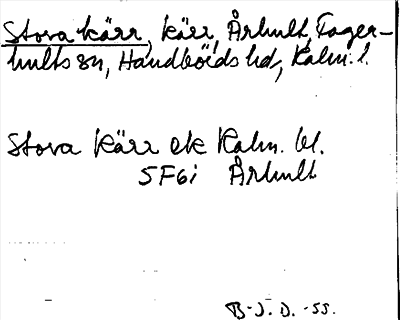 Stora kärr, kärr, Århult, Fager-
hults sn, Handbörds hd, Kalm. l.
Stora Kärr ek Kalm. bl.
5F6i Århult
B-J. D. -55.